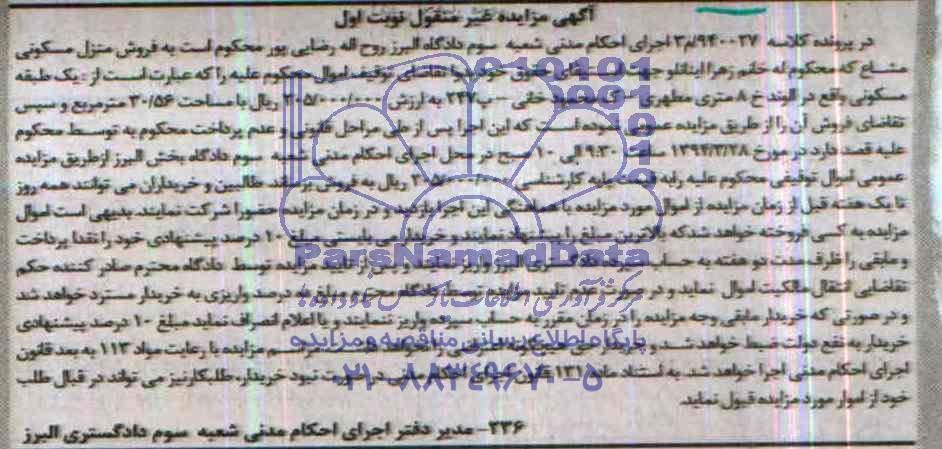 آگهی مزایده غیر منقول نوبت اول
در پرونده کلاسه ۹۴۰۰۲۷/م۳ اجرای احکام مدنی شعبه سوم دادگاه البرز روح اله رضایی پور محکوم است به فروش منزل مسکونی
مشاع که محکوم له خانم زهرا اینانلو جهت استیفای حقوق خود بدوا تقاضای توقیف اموال محکوم علیه را که عبارت است از: یک طبقه
مسکونی واقع در الوند خ ۸ متری مطهری – ک محمود خانی – پ۲۴۷ به ارزش ۲۰۵/۰۰۰/۰۰۰ ریال با مساحت ۳۰/۵۶ مترمربع و سپس
تقاضای فروش آن را از طریق مزایده عمومی نموده است که این اجرا پس از طی مراحل قانونی و عدم پرداخت محکوم به توسط محکوم
علیه قصد دارد در مورخ ۱۳۹۴/۳/۲۸ ساعت ۹:۳۰ الی ۱۰ صبح در محل اجرای احکام مدنی شعبه سوم دادگاه بخش البرز ازطریق مزایده
عمومی اموال توقیفی محکوم علیه را به قیمت پایه کارشناسی ریال به فروش برساند. طالبین و خریداران می توانند همه روز
تا یک هفته قبل از زمان مزایده از اموال مورد مزایده با هماهنگی این اجرا بازدید و در زمان مزایده حضورا شرکت نمایند. بدیهی است اموال
مزایده به کسی فروخته خواهد شد که بالاترین مبلغ را پیشنهاد نمایند و خریدار می بایستی مبلغ ۱۰ درصد پیشنهادی خود را نقدا پرداخت
و مابقی را ظرف مدت دو هفته به حساب سپرده دادگستری البرز واریز نمایند و پس از تایید مزایده توسط دادگاه محترم صادر کننده حکم
تقاضای انتقال مالکیت اموال نماید و در صورت عدم تایید مزایده توسط دادگاه محترم مبلغ ده درصد واریزی به خریدار مسترد خواهد شد
و در صورتی که خریدار مابقی وجه مزایده را در زمان مقرر به حساب سپرده واریز ننمایند و یا اعلام انصراف نماید مبلغ ۱۰ درصد پیشنهادی
خریدار به نفع دولت ضبط خواهد شد و خریدار حق هیچ گونه اعتراضی را نخواهد داشت مراسم مزایده با رعایت مواد ۱۱۳ به بعد قانون
اجرای احکام مدنی اجرا خواهد شد. به استناد ماده ۱۳۱ قانون اجرای احکام مدنی در صورت نبود خریدار، طلبکار نیز می تواند در قبال طلب
خود از اموار مورد مزایده قبول نماید.
۲۳۶- مدیر دفتر اجرای احکام مدنی شعبه سوم دادگستری البرز
ParsNamadData
مرکز فرآوری اطلاعات پارس نماد داده ها
پایگاه اطلاع رسانی مناقصه و مزایده
۰۲۱-۸۸۳۴۹۶۷۰-۵